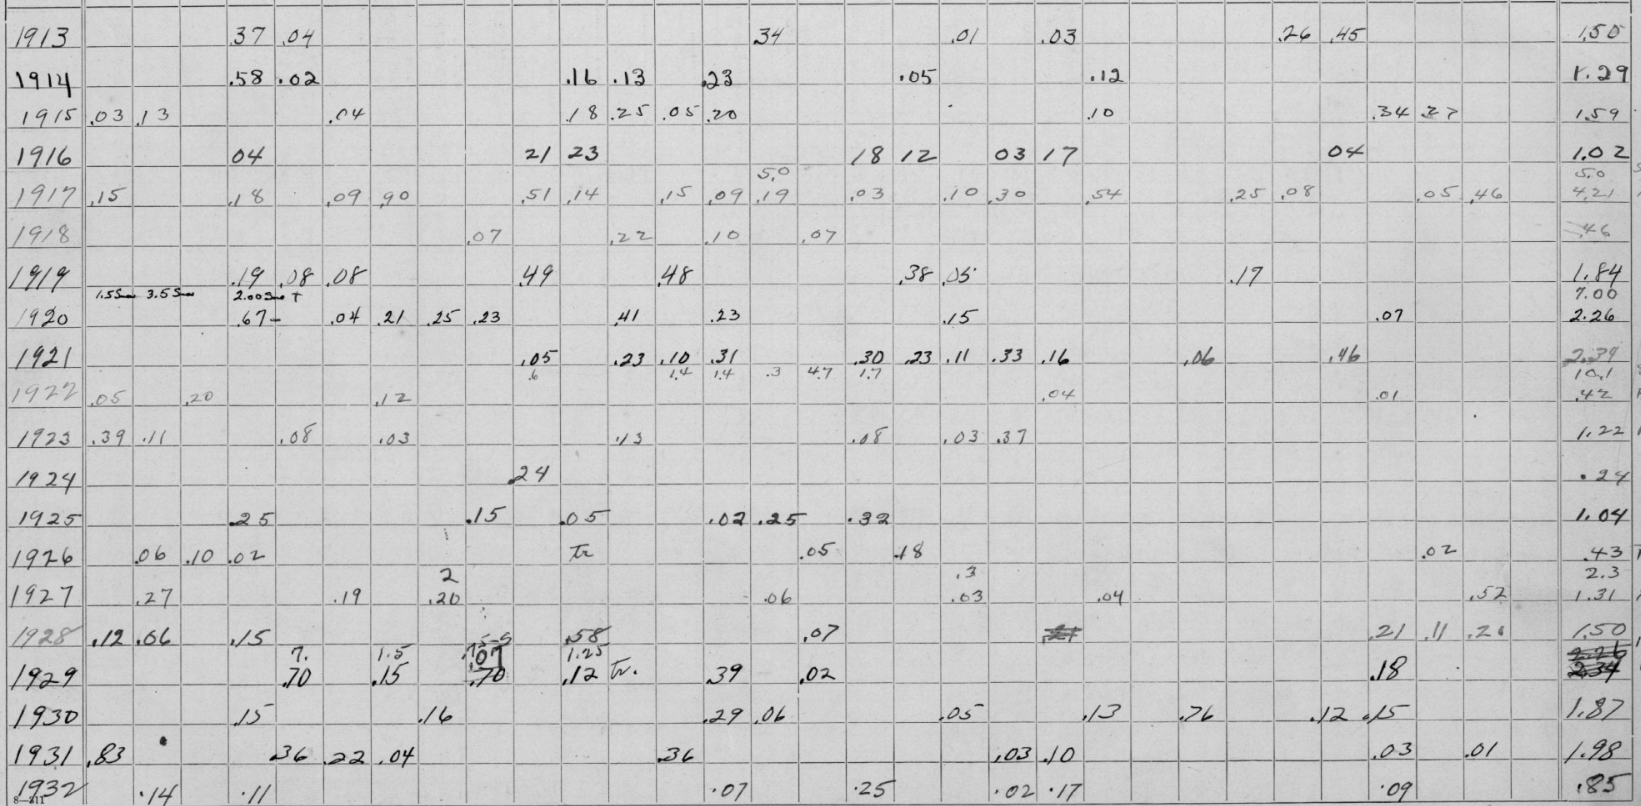 1913 .37 .04 .34 .01 .03 .26 .45 1.50
1914 .58 .02 .16 .13 .23 .05 .12 1.29
1915 .03 .13 .04 .18 .25 .05 .20 .10 .34 .27 1.59
1916 04 21 23 18 12 03 17 04 1.02
5.0 5.0
1917 .15 .18 .09 .90 .51 .14 .15 .09 .19 .03 .10 .30 .54 .25 .08 .05 .46 4.21
1918 .07 .22 .10 .07 .46
1919 .19 .08 .08 .49 .48 .38 .05 .17 1.84
1.5 Snow 3.5 Snow 2.00 Snow T 7.00
1920 .67- .04 .21 .25 .23 .41 .23 .15 .07 2.26
1921 .05 .23 .10 .31 .30 .23 .11 .33 .16 .06 .46 2.34
.6 1.4 1.4 .3 4.7 1.7 10.1
1922 .05 .20 .12 .04 .01 .42
1923 .39 .11 .08 .03 .13 .08 .03 .37 1.22
1924 .24 .24
1925 .25 .15 .05 .02 .25 .32 1.04
1926 .06 .10 .02 Tr .05 .18 .02 .43
2 .3 2.3
1927 .27 .19 .20 .06 .03 .04 .52 1.31
1928 .12 .06 .15 .58 .07 .21 .11 .20 1.50
7. 1.5 .07 1.25
1929 .70 .15 .70 .12 Tr. .39 .02 .18 2.34
1930 .15 .16 .29 .06 .05 .13 .76 .12 .15 1.87
1931 .83 .36 .22 .04 .36 .03 .10 .03 .01 1.98
1932 .14 .11 .07 .25 .02 .17 .09 .85